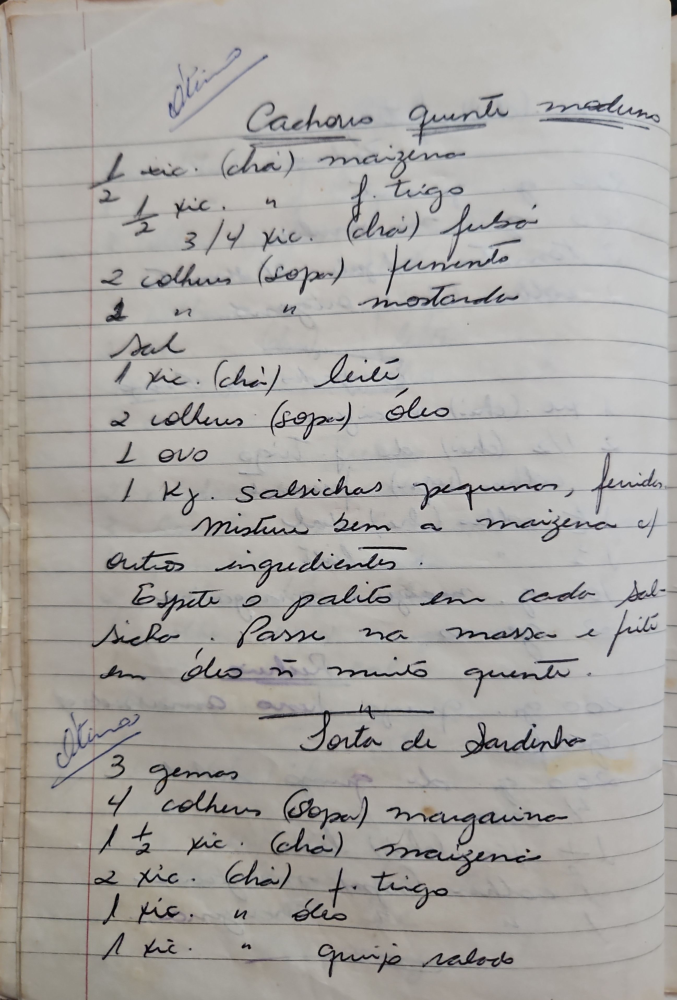 Ótimo
Cachorro quente moderno
1/2 xic. (chá) maizena
1/2 xic. " f. trigo
3/4 xic. (chá) fubá
2 colheres (sopa) fermento
2 " " mostarda
Sal
1 xic. (chá) leite
2 colheres (sopa) óleo
1 ovo
1 Kg. salsichas pequenas, fervidas.
Misture bem a maizena c/
outros ingredientes.
Espete o palito em cada sal-
sicha. Passe na massa e frite
em óleo ñ muito quente.
"
Ótima
Torta de Sardinha
3 gemas
4 colheres (sopa) margarina
1 1/2 xic. (chá) maizena
2 xic. (chá) f. trigo
1 xic. " óleo
1 xic. " queijo ralado